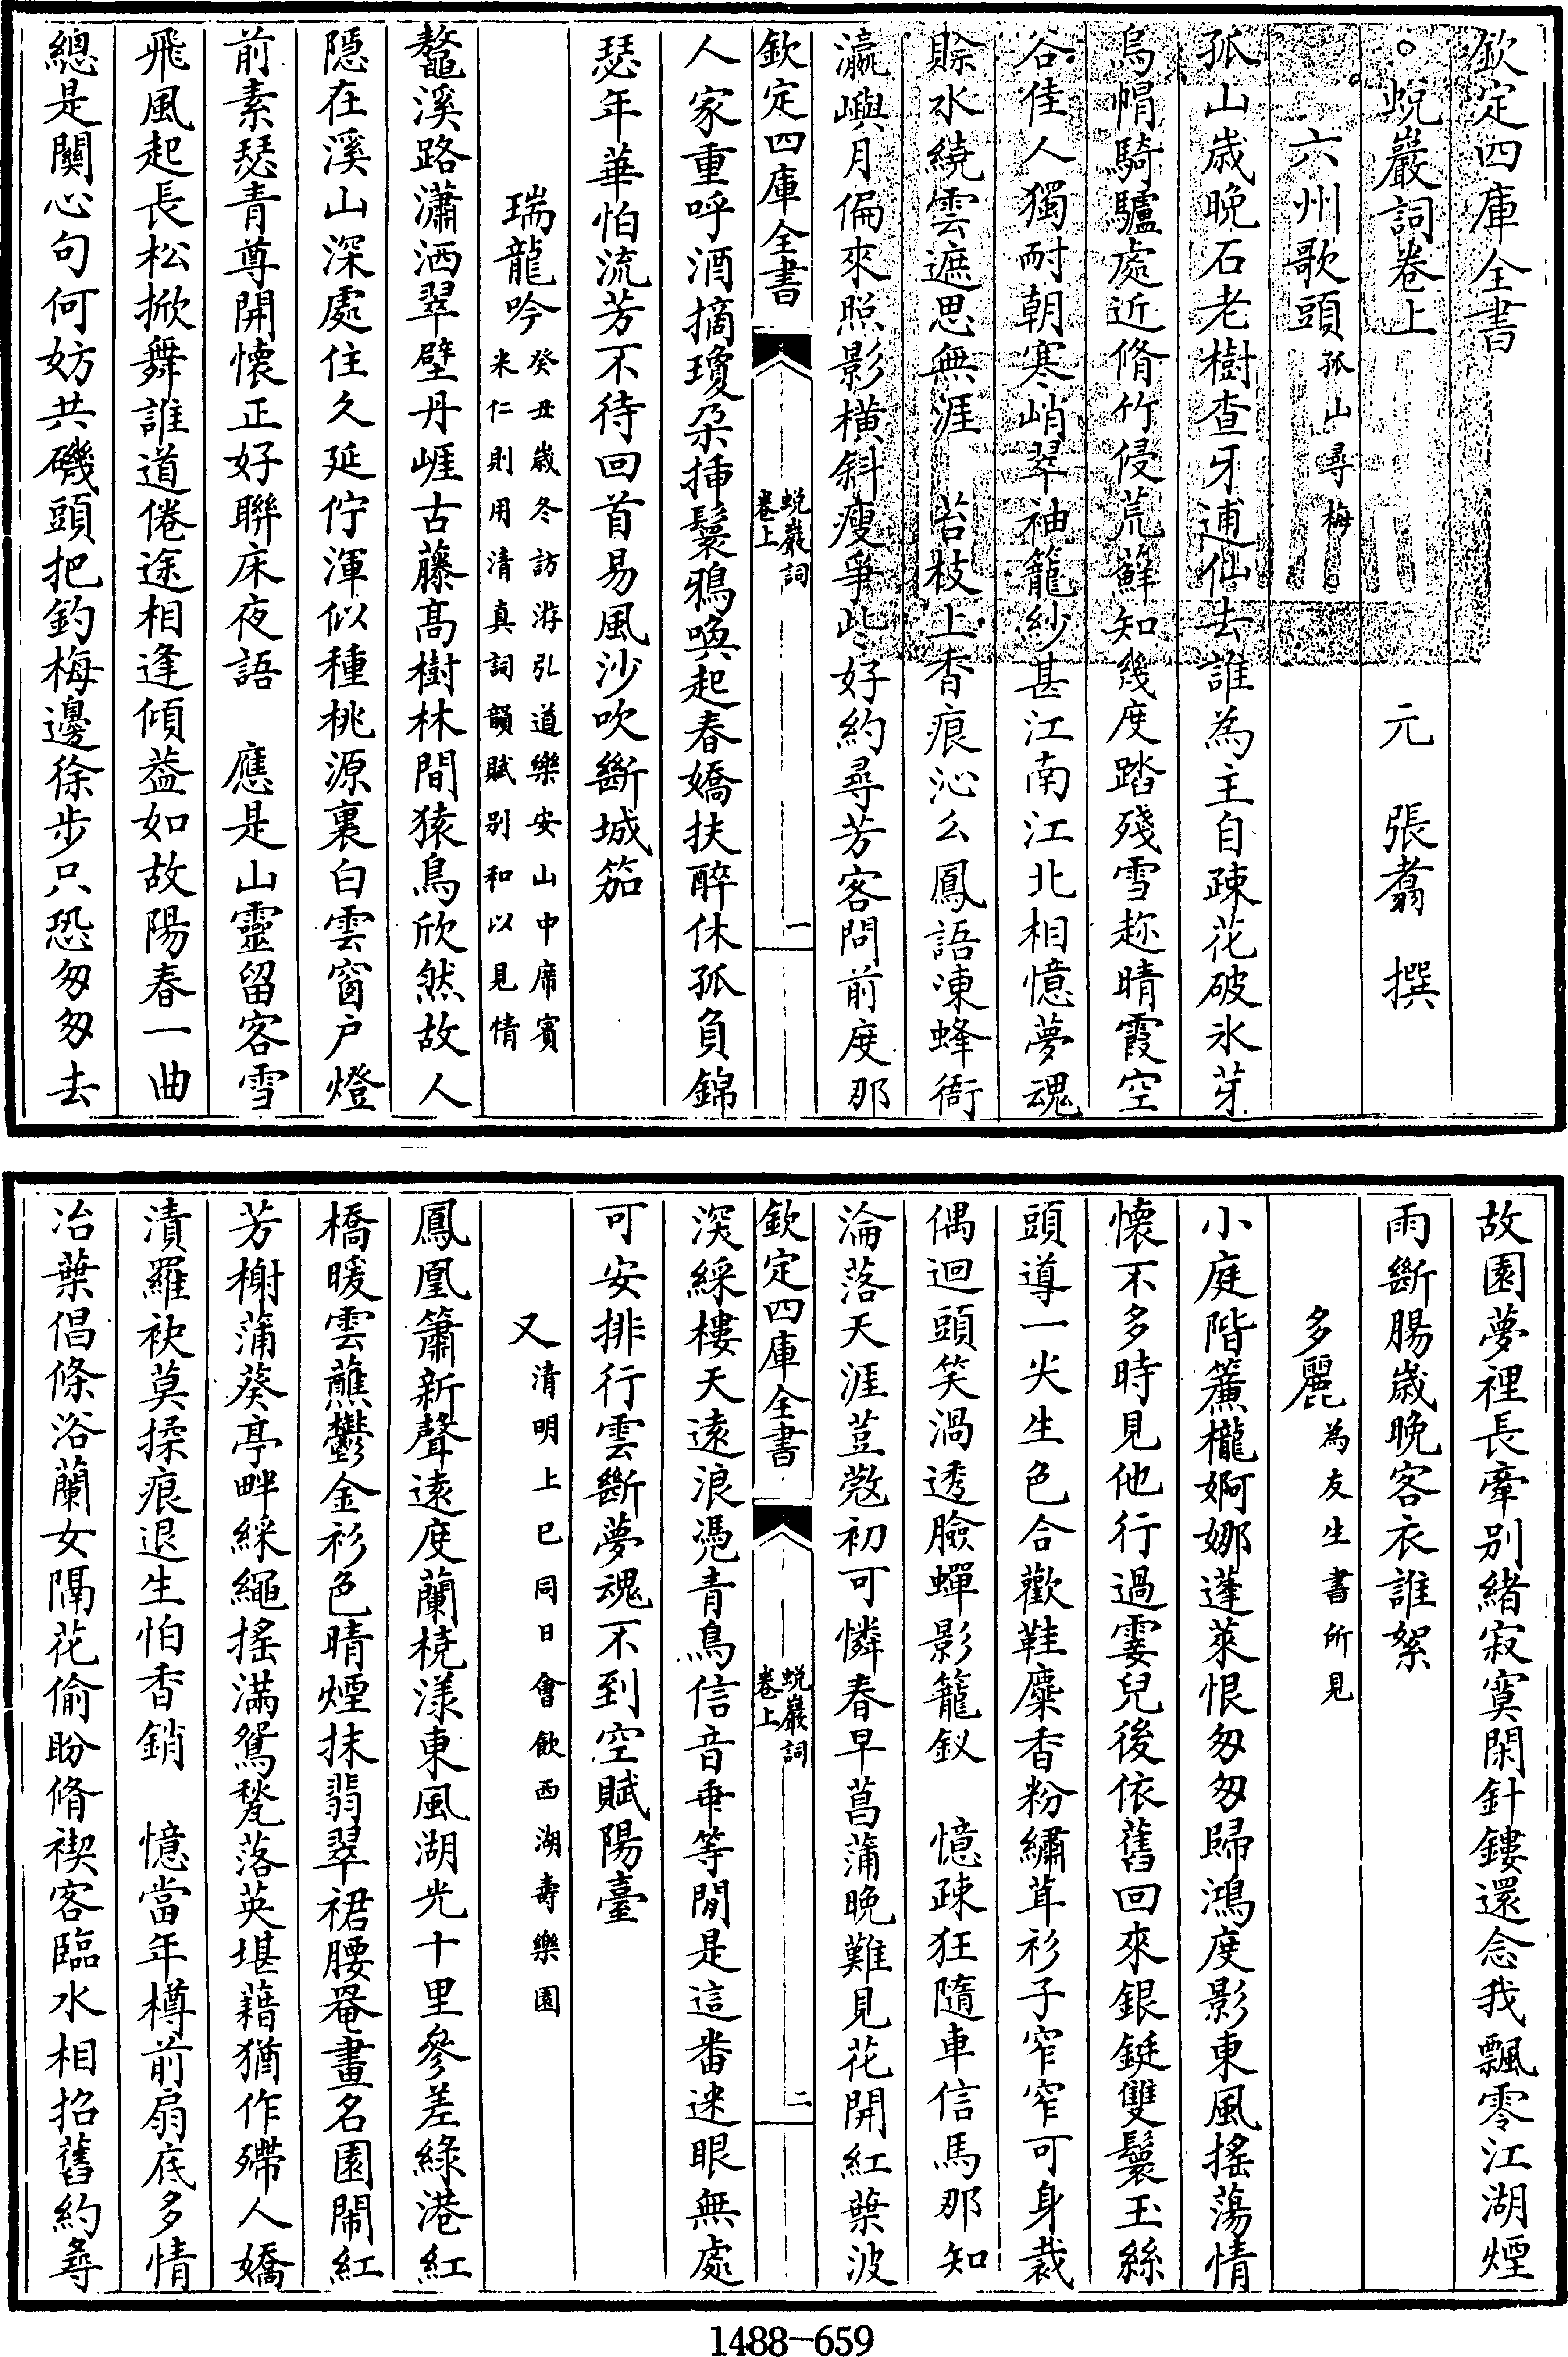 欽定四庫全書
蛻巖詞卷上
元　張翥　撰
六州歌頭孤山尋梅
孤山歲晚石老樹查牙逋仙去誰為主自疎花破氷芽
烏帽騎驢處近脩竹侵荒蘚知幾度踏殘雪趂晴霞空
谷佳人獨耐朝寒峭翠袖籠紗甚江南江北相憶夢魂
賖水繞雲遮思無涯　苔枝上香痕沁么鳳語凍蜂衙
瀛嶼月偏來照影橫斜瘦爭些好約尋芳客問前度那
欽定四庫全書
蛻巖詞
卷上
一
人家重呼酒摘瓊朶揷鬟鴉喚起春嬌扶醉休孤負錦
瑟年華怕流芳不待回首易風沙吹斷城笳
瑞龍吟癸丑歲冬訪游弘道樂安山中席賓
米仁則用清真詞韻賦别和以見情
鼇溪路瀟洒翠壁丹崖古藤高樹林間猿鳥欣然故人
隱在溪山深處住久延佇渾似種桃源裏白雲窗户燈
前素瑟青尊開懷正好聯床夜語　應是山靈留客雪
飛風起長松掀舞誰道倦途相逢傾葢如故陽春一曲
總是闗心句何妨共磯頭把釣梅邊徐步只恐匆匆去
故園夢裡長牽别緒寂寞閑針鏤還念我飄零江湖煙
雨斷腸歲晚客衣誰絮
多麗為友生書所見
小庭階簾櫳婀娜蓬萊恨匆匆歸鴻度影東風摇蕩情
懷不多時見他行過霎兒後依舊回來銀鋌雙鬟玉絲
頭導一尖生色合歡鞋麋香粉繡茸衫子窄窄可身裁
偶迴頭笑渦透臉蟬影籠釵　憶疎狂隨車信馬那知
淪落天涯荳蔲初可憐春早菖蒲晚難見花開紅葉波
欽定四庫全書
蛻巖詞
卷上
二
深綵樓天遠浪憑青鳥信音乖等閒是這番迷眼無處
可安排行雲斷夢魂不到空賦陽臺
又清明上巳同日會飲西湖壽樂園
鳳凰簫新聲遠度蘭橈漾東風湖光十里參差綠港紅
橋暖雲蘸鬱金衫色晴煙抹翡翠裙腰罨畫名園閙紅
芳榭蒲葵亭畔綵繩摇滿鴛甃落英堪藉猶作殢人嬌
漬羅袂莫揉痕退生怕香銷　憶當年樽前扇底多情
冶葉倡條浴蘭女隔花偷盼脩禊客臨水相招舊約尋
1488-659